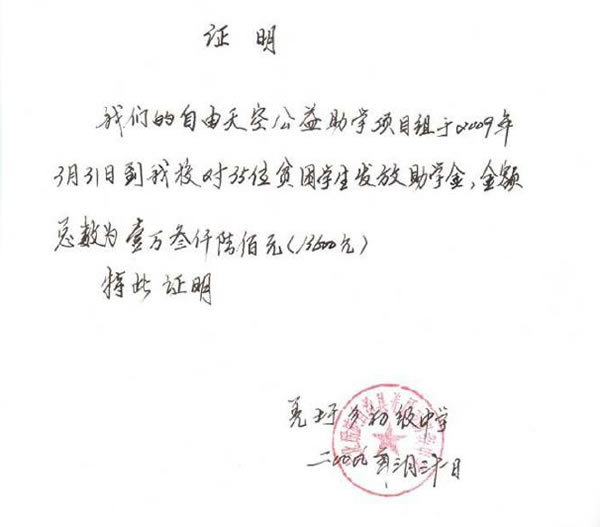 证明
我们的自由天空公益助学项目组于2009年
3月31日到我校对35位贫困学生发放助学金,金额
总数为壹万叁仟陆佰元(13600元)
特此证明
乡初级中学
二00九年三月三十一日